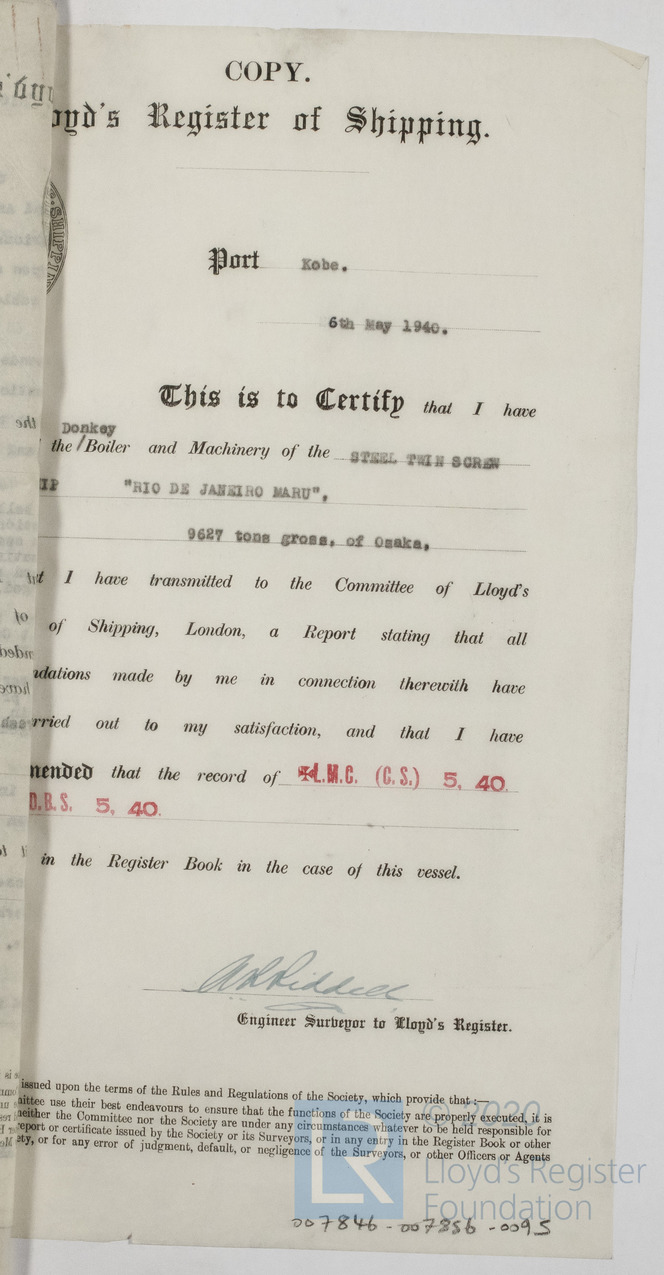 COPY.
oyd's Register of Shipping.
Port Kobe.
6th May 1940.
This is to Certify that I have
Donkey
the/Boiler and Machinery of the STEEL TWIN SCREW
IP "RIO DE JANEIRO MARU",
9627 tons gross, of Osaka,
I have transmitted to the Committee of Lloyd's
of Shipping, London, a Report stating that all
dations made by me in connection therewith have
rried out to my satisfaction, and that I have
mended that the record of ✠L.M.C. (C.S.) 5, 40.
D.B.S. 5, 40.
in the Register Book in the case of this vessel.
A R Riddell
Engineer Surveyor to Lloyd's Register.
issued upon the terms of the Rules and Regulations of the Society, which provide that:—
mittee use their best endeavours to ensure that the functions of the Society are properly executed, it is
neither the Committee nor the Society are under any circumstances whatever to be held responsible for
report or certificate issued by the Society or its Surveyors, or in any entry in the Register Book or other
ety, or for any error of judgment, default, or negligence of the Surveyors, or other Officers or Agents
© 2020
LR
Lloyd's Register
Foundation
007846-007856-0095